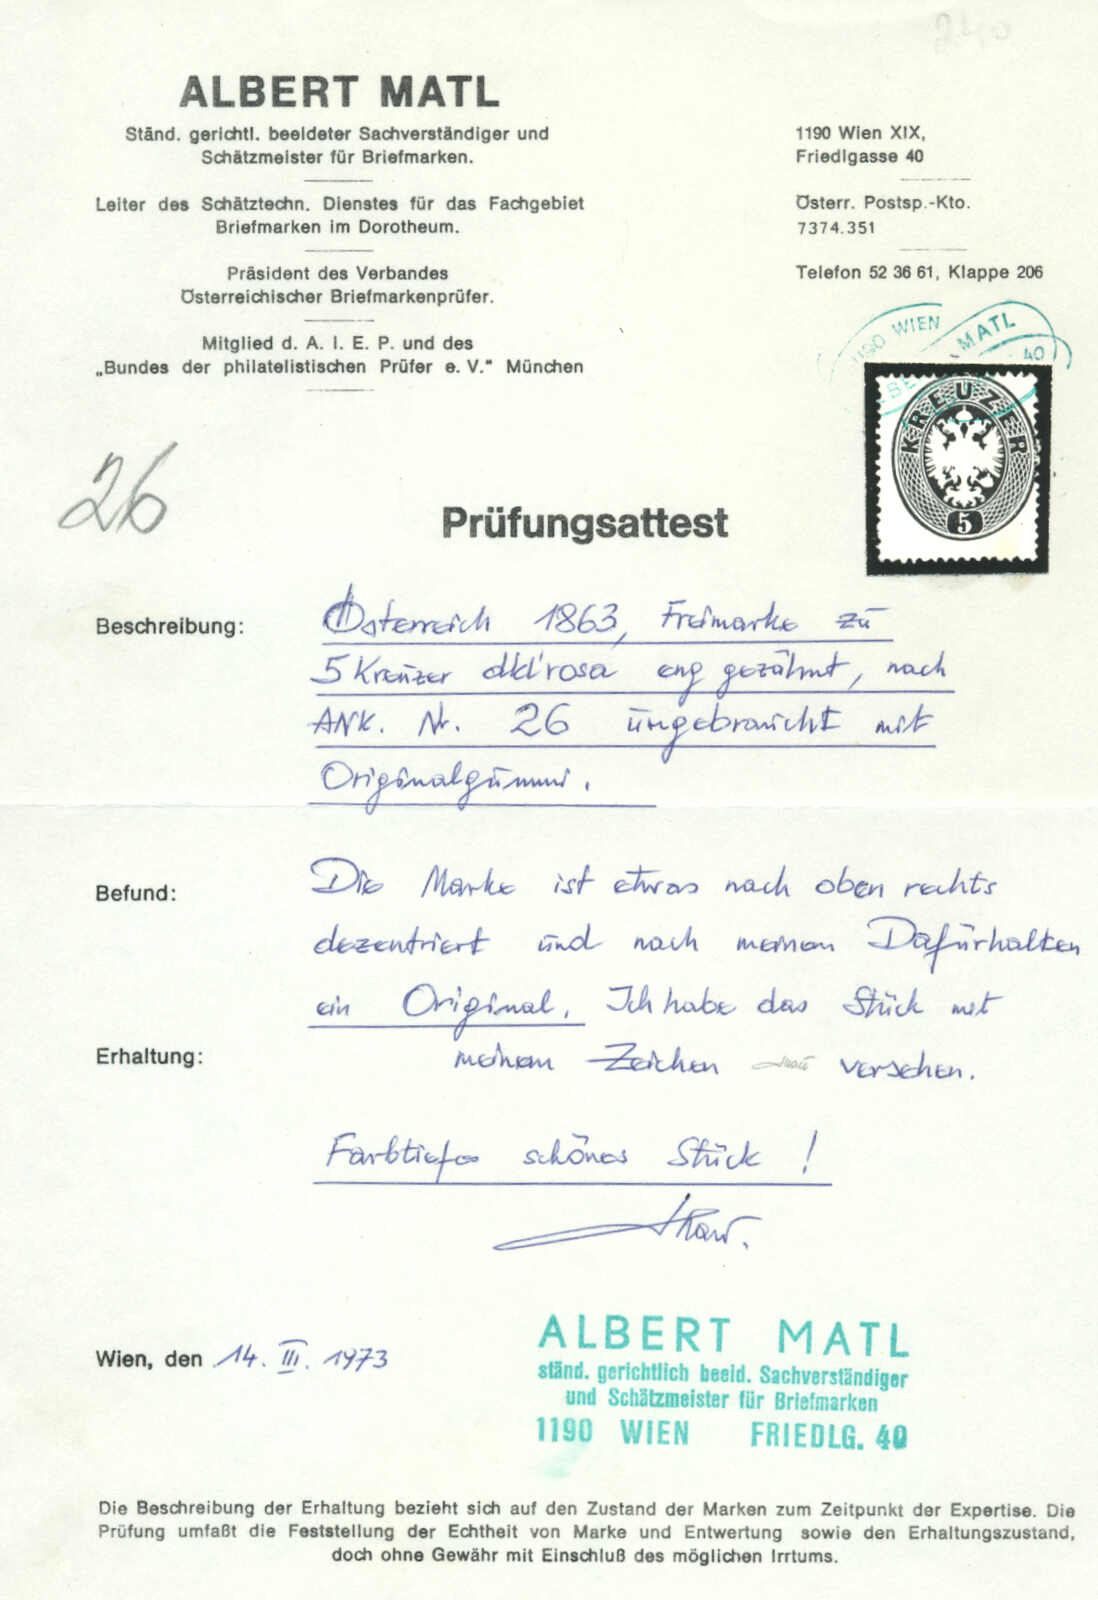 240
ALBERT MATL
Ständ. gerichtl. beeldeter Sachverständiger und
Schätzmeister für Briefmarken.
Leiter des Schätztechn. Dienstes für das Fachgebiet
Briefmarken im Dorotheum.
Präsident des Verbandes
Österreichischer Briefmarkenprüfer.
Mitglied d. A. I. E. P. und des
„Bundes der philatelistischen Prüfer e. V." München
1190 Wien XIX,
Friedlgasse 40
Österr. Postsp.-Kto.
7374.351
Telefon 52 36 61, Klappe 206
1190 WIEN
MATL
40
KREUZER
5
26
Prüfungsattest
Beschreibung:
Österreich 1863, Freimarke zu
5 Kreuzer dkl'rosa eng gezähnt, nach
ANK. Nr. 26 ungebraucht mit
Originalgummi.
Befund:
Die Marke ist etwas nach oben rechts
dezentriert und nach meinem Dafürhalten
ein Original. Ich habe das Stück mit
Erhaltung:
meinem Zeichen versehen.
Farbtiefes schönes Stück !
Wien, den 14. III. 1973
ALBERT MATL
ständ. gerichtlich beeid. Sachverständiger
und Schätzmeister für Briefmarken
1190 WIEN FRIEDLG. 40
Die Beschreibung der Erhaltung bezieht sich auf den Zustand der Marken zum Zeitpunkt der Expertise. Die
Prüfung umfaßt die Feststellung der Echtheit von Marke und Entwertung sowie den Erhaltungszustand,
doch ohne Gewähr mit Einschluß des möglichen Irrtums.